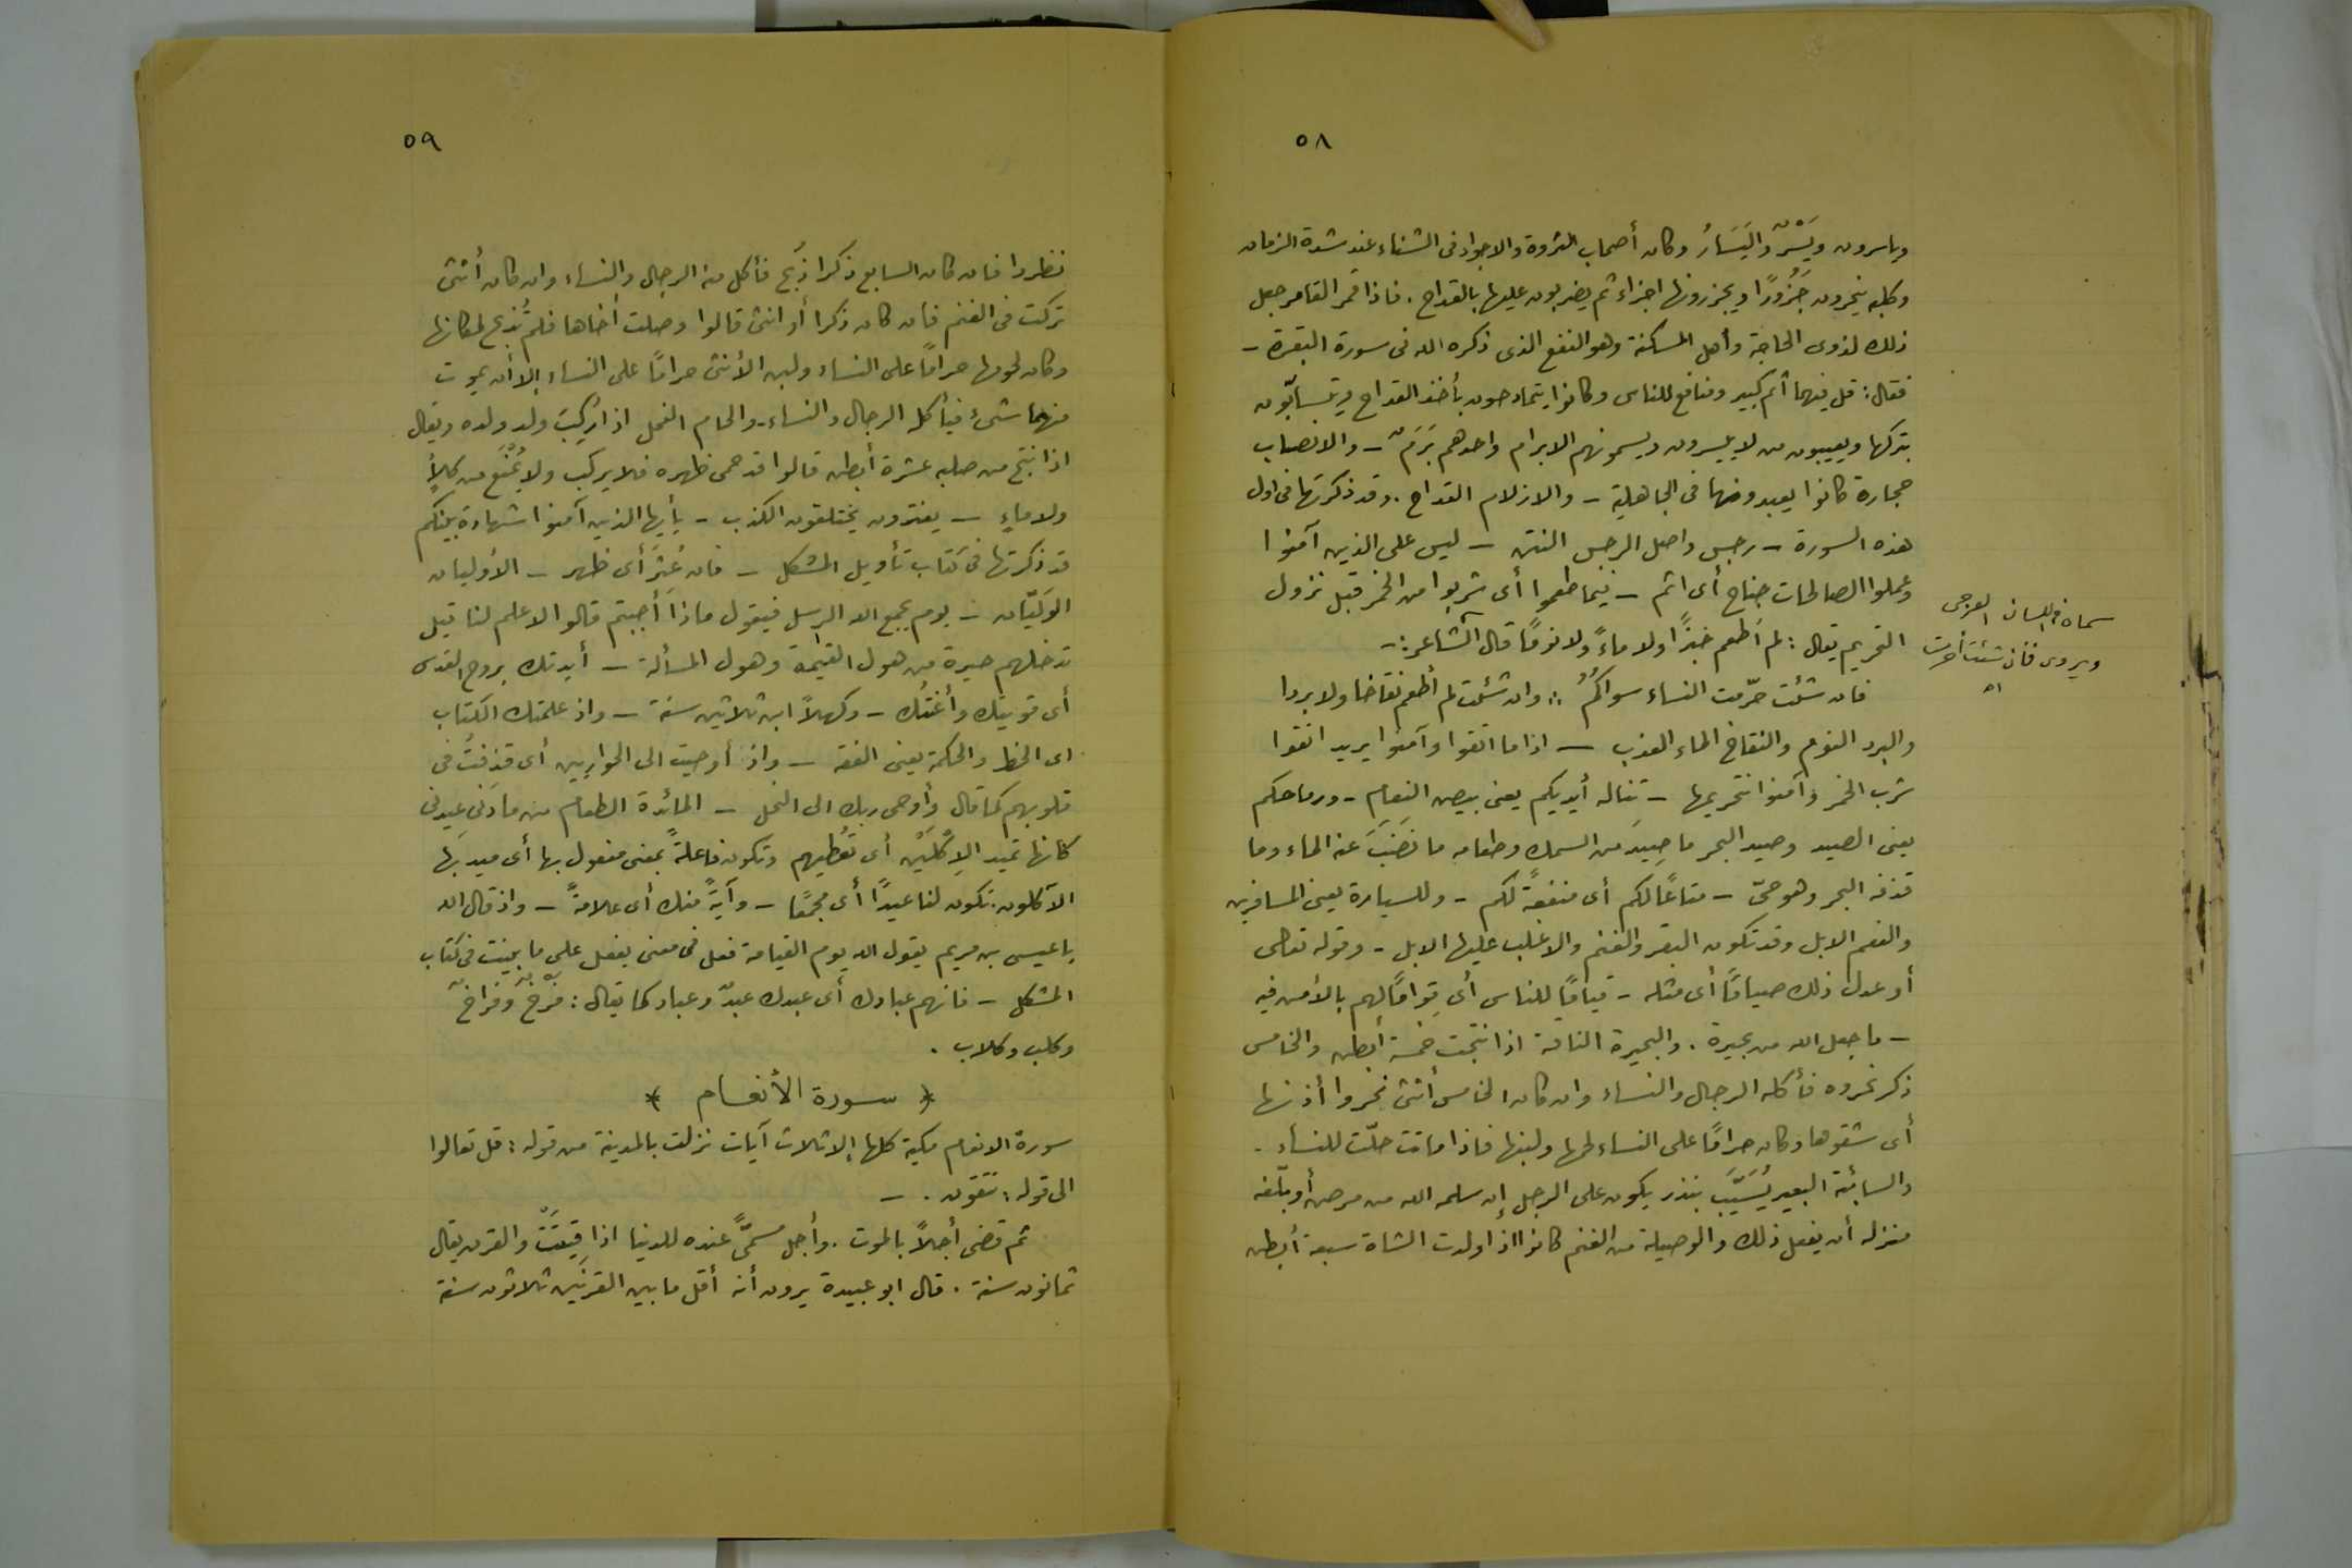 ٥٨
وياسرون ويَسَرٌ واليَسَارُ وكان أصحاب الثروة والاجواد فى الشتاء عند شدة الزمان
وكلبه ينحرون جَزُورًا ويجزرونها اجزاء ثم يضربون عليها بالقداح . فاذا قمر القامر جعل
ذلك لذوى الحاجة وأهل المسكنة وهو النفع الذى ذكره الله فى سورة البقرة -
فقال : قل فيهما اثم كبير ومنافع للناس وكانوا يتمادحون بأخذ القداح ويتسابّون
بتركها ويعيبون من لا ييسرون ويسمونهم الابرام واحدهم بَرَمٌ - والانصاب
حجارة كانوا يعبدونها فى الجاهلية - والازلام القداح . وقد ذكرتها فى اول
هذه السورة - رجس واصل الرجس النتن - ليس على الذين آمنوا
وعملوا الصالحات جناح أى اثم - فيما طعموا أى شربوا من الخمر قبل نزول
التحريم يقال : لم اَطعم خبزًا ولا ماءً ولا نومًا قال الشاعر : -
فان شئت حرّمت النساء سواكُمُ ∴ وان شئت لم أطعم نقاخا ولا بردا
والبرد النوم والنقاخ الماء العذب - اذا ما اتقوا وآمنوا يريد اتقوا
شرب الخمر وآمنوا بتحريمها - تناله أيديكم يعنى بيض النعام - ورماحكم
يعنى الصيد وصيد البحر ما صِيدَ من السمك وطعامه ما نَضَبَ عنه الماء وما
قذفه البحر وهو حىّ - متاعًا لكم أى منفعةً لكم - وللسيارة يعنى المسافرين
والنعم الابل وقد تكون البقر والغنم والاغلب عليها الابل - وقوله تعالى
أو عدل ذلك صيامًا أى مثله - قيامًا للناس أى قِوامًا لهم بالأمن فيه
- ما جعل الله من بحيرة . والبحيرة الناقة اذا نتجت خمسة أبطن والخامس
ذكر نحروه فأكله الرجال والنساء وان كان الخامس أنثى نحروا أذنها
أى شقوها وكان حرامًا على النساء لحمها ولبنها فاذا ماتت حلّت للنساء .
والسائبة البعير يُسَيَّبُ بنذر يكون على الرجل إن سلمه الله من مرض أو بلّغه
منزله أن يفعل ذلك والوصيلة من الغنم كانوا اذا ولدت الشاة سبعة أبطن
سماه فى اللسان العرجى
ويروى فان شئت أحرمت
اه
٥٩
نظروا فان كان السابع ذكرا ذُبح فأكل منه الرجال والنساء وان كان أنثى
تركت فى الغنم فان كان ذكرا أو انثى قالوا وصلت أخاها فلم تُذبح لمكانها
وكان لحومها حرامًا على النساء ولبن الأنثى حرامًا على النساء إلا أن يموت
منهما شىء فيأكله الرجال والنساء - والحام الفحل اذا رُكِبَ ولد ولده ويقال
اذا نتج من صلبه عشرة أبطن قالوا قد حمى ظهره فلا يركب ولا يُمْنَع من كلأٍ
ولا ماءٍ - يفترون يختلقون الكذب - يأيها الذين آمنوا شهادة بينكم
قد ذكرتها فى كتاب تأويل المشكل - فان عُثِرَ أى ظهر - الأوليان
الوَليّان - يوم يجمع الله الرسل فيقول ماذا أُجبتم قالوا لا علم لنا قيل
تدخلهم حيرة من هول القيمة وهول المسألة - أيدتك بروح القدس
أى قويتك وأعنتُك - وكهلاً ابن ثلاثين سنة - واذ علمتك الكتاب
اى الخط والحكمة يعنى الفقه - واذ أوحيت الى الحواريين أى قذفتُ فى
قلوبهم كما قال وأوحى ربك الى النحل - المائدة الطعام من مادَنى يَميدنى
كانها تميد الاِكليْن أى تعُطيهم وتكون فاعلةً بمعنى مفعول بها أى ميد بَها
الآكلون . تكون لنا عيدًا أى مجمعًا - وآيةً منك أى علامةً - واذ قال الله
يا عيسى بن مريم يقول الله يوم القيامة فعل فى معنى يفعل على ما بينت فى كتاب
المشكل - فانهم عبادك أى عبيدك عبدٌ وعباد كما يقال : فرْخٌ وفراخٌ
وكلب وكلاب .
﴿ سورة الأنعام ﴾
سورة الانعام مكية كلها إلا ثلاث آيات نزلت بالمدينة من قوله : قل تعالوا
الى قوله : تتقون . -
ثم قضى أجلاً بالموت . وأجل مسمّىً عنده للدنيا اذا فنيَتْ والقرن يقال
ثمانون سنة . قال ابو عبيدة يرون أنه أقل ما بين القرنَين ثلاثون سنة